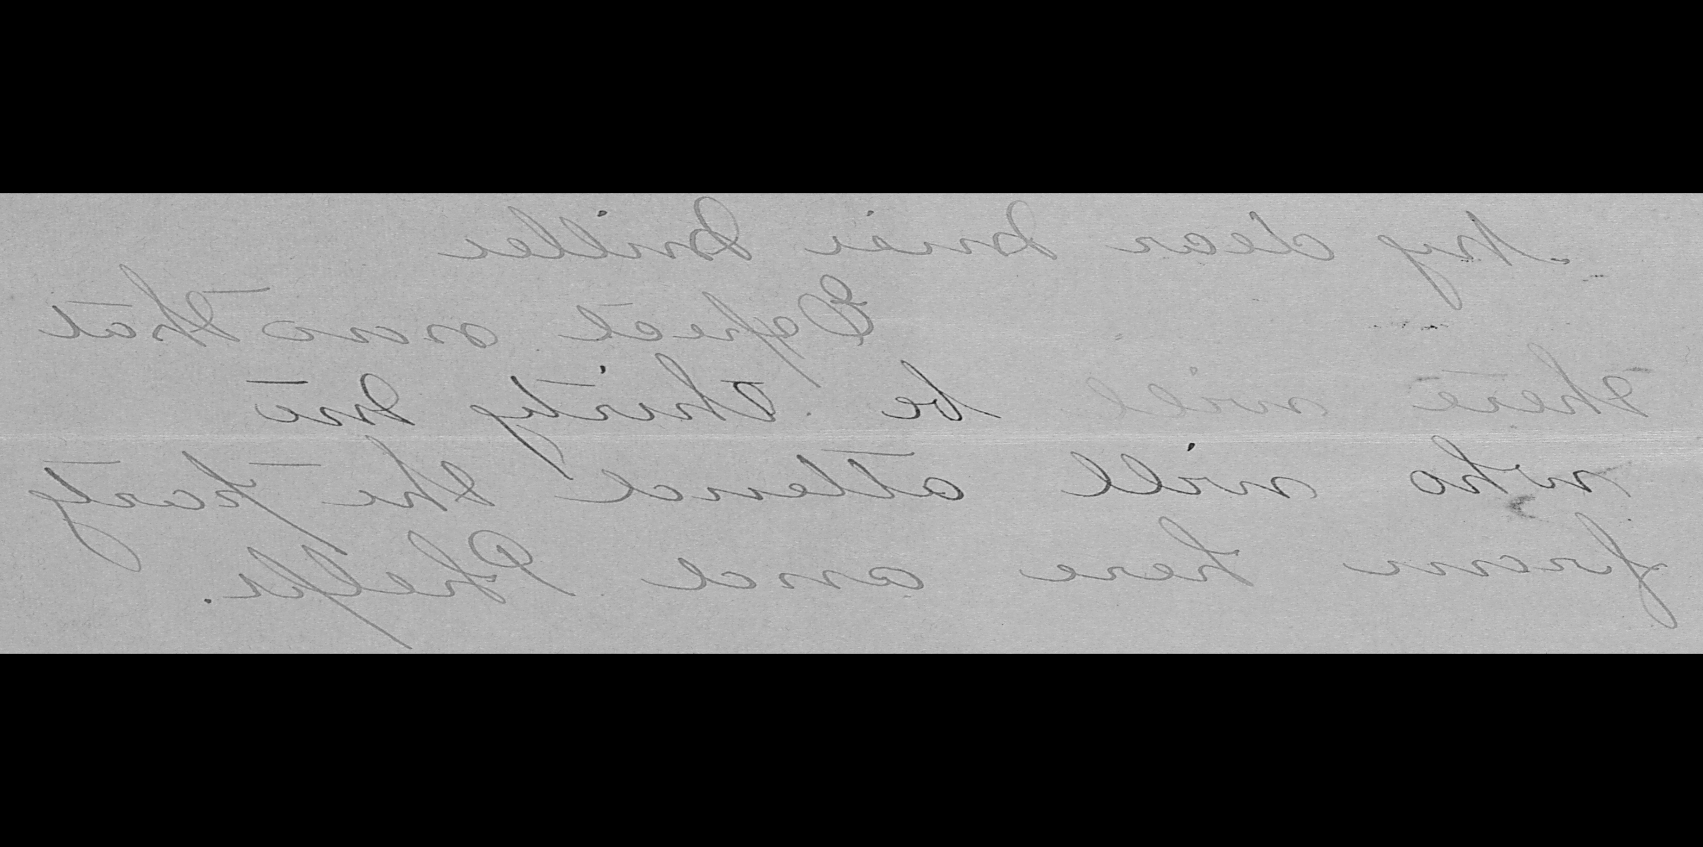 My dear Miss Miller
Expect now that
there will be thirty
who will attend the party
from here and Phelps.